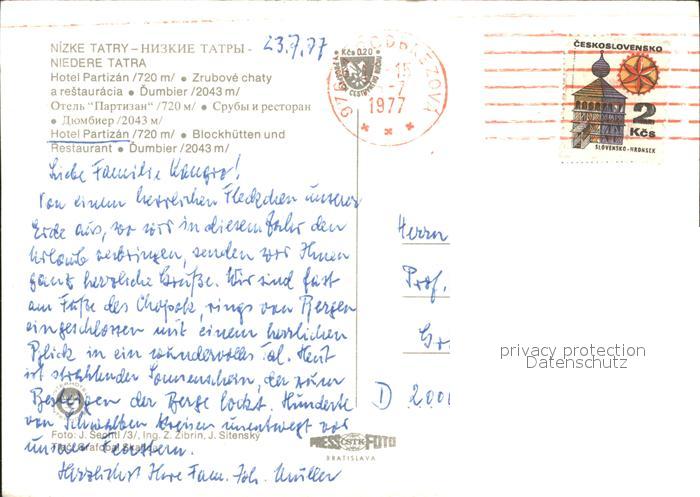 NÍZKE TATRY – НИЗКИЕ ТАТРЫ -
NIEDERE TATRA
Hotel Partizán /720 m/ • Zrubové chaty
a reštaurácia • Ďumbier /2043 m/
Отель "Партизан" /720 м/ • Срубы и ресторан
• Дюмбиер /2043 м/
Hotel Partizán /720 m/ • Blockhütten und
Restaurant • Ďumbier /2043 m/
23.7.77
Kčs 0.20
15
-7
1977
ČESKOSLOVENSKO
2
Kčs
SLOVENSKO-HRONSEK
Liebe Familie
Von einem herrlichen Fleckchen unserer
Erde aus, wo wir in diesem Jahr den
Urlaub verbringen, senden wir Ihnen
ganz herzliche Grüße. Wir sind fast
am Fuße des Chopok, rings von Bergen
eingeschlossen mit einem herrlichen
Blick in ein wundervolles Tal. Heut
ist strahlender Sonnenschein, der zum
Besteigen der Berge lockt. Hunderte
von Schwalben kreisen unentwegt vor
unseren Fenstern.
Herzlichst Ihre Fam. Joh. Müller
Herrn
Prof.
D 2001
privacy protection
Datenschutz
Foto: J. Sechtl /3/, Ing. Z. Zibrin, J. Sitenský
PRESS ČSTK FOTO
BRATISLAVA